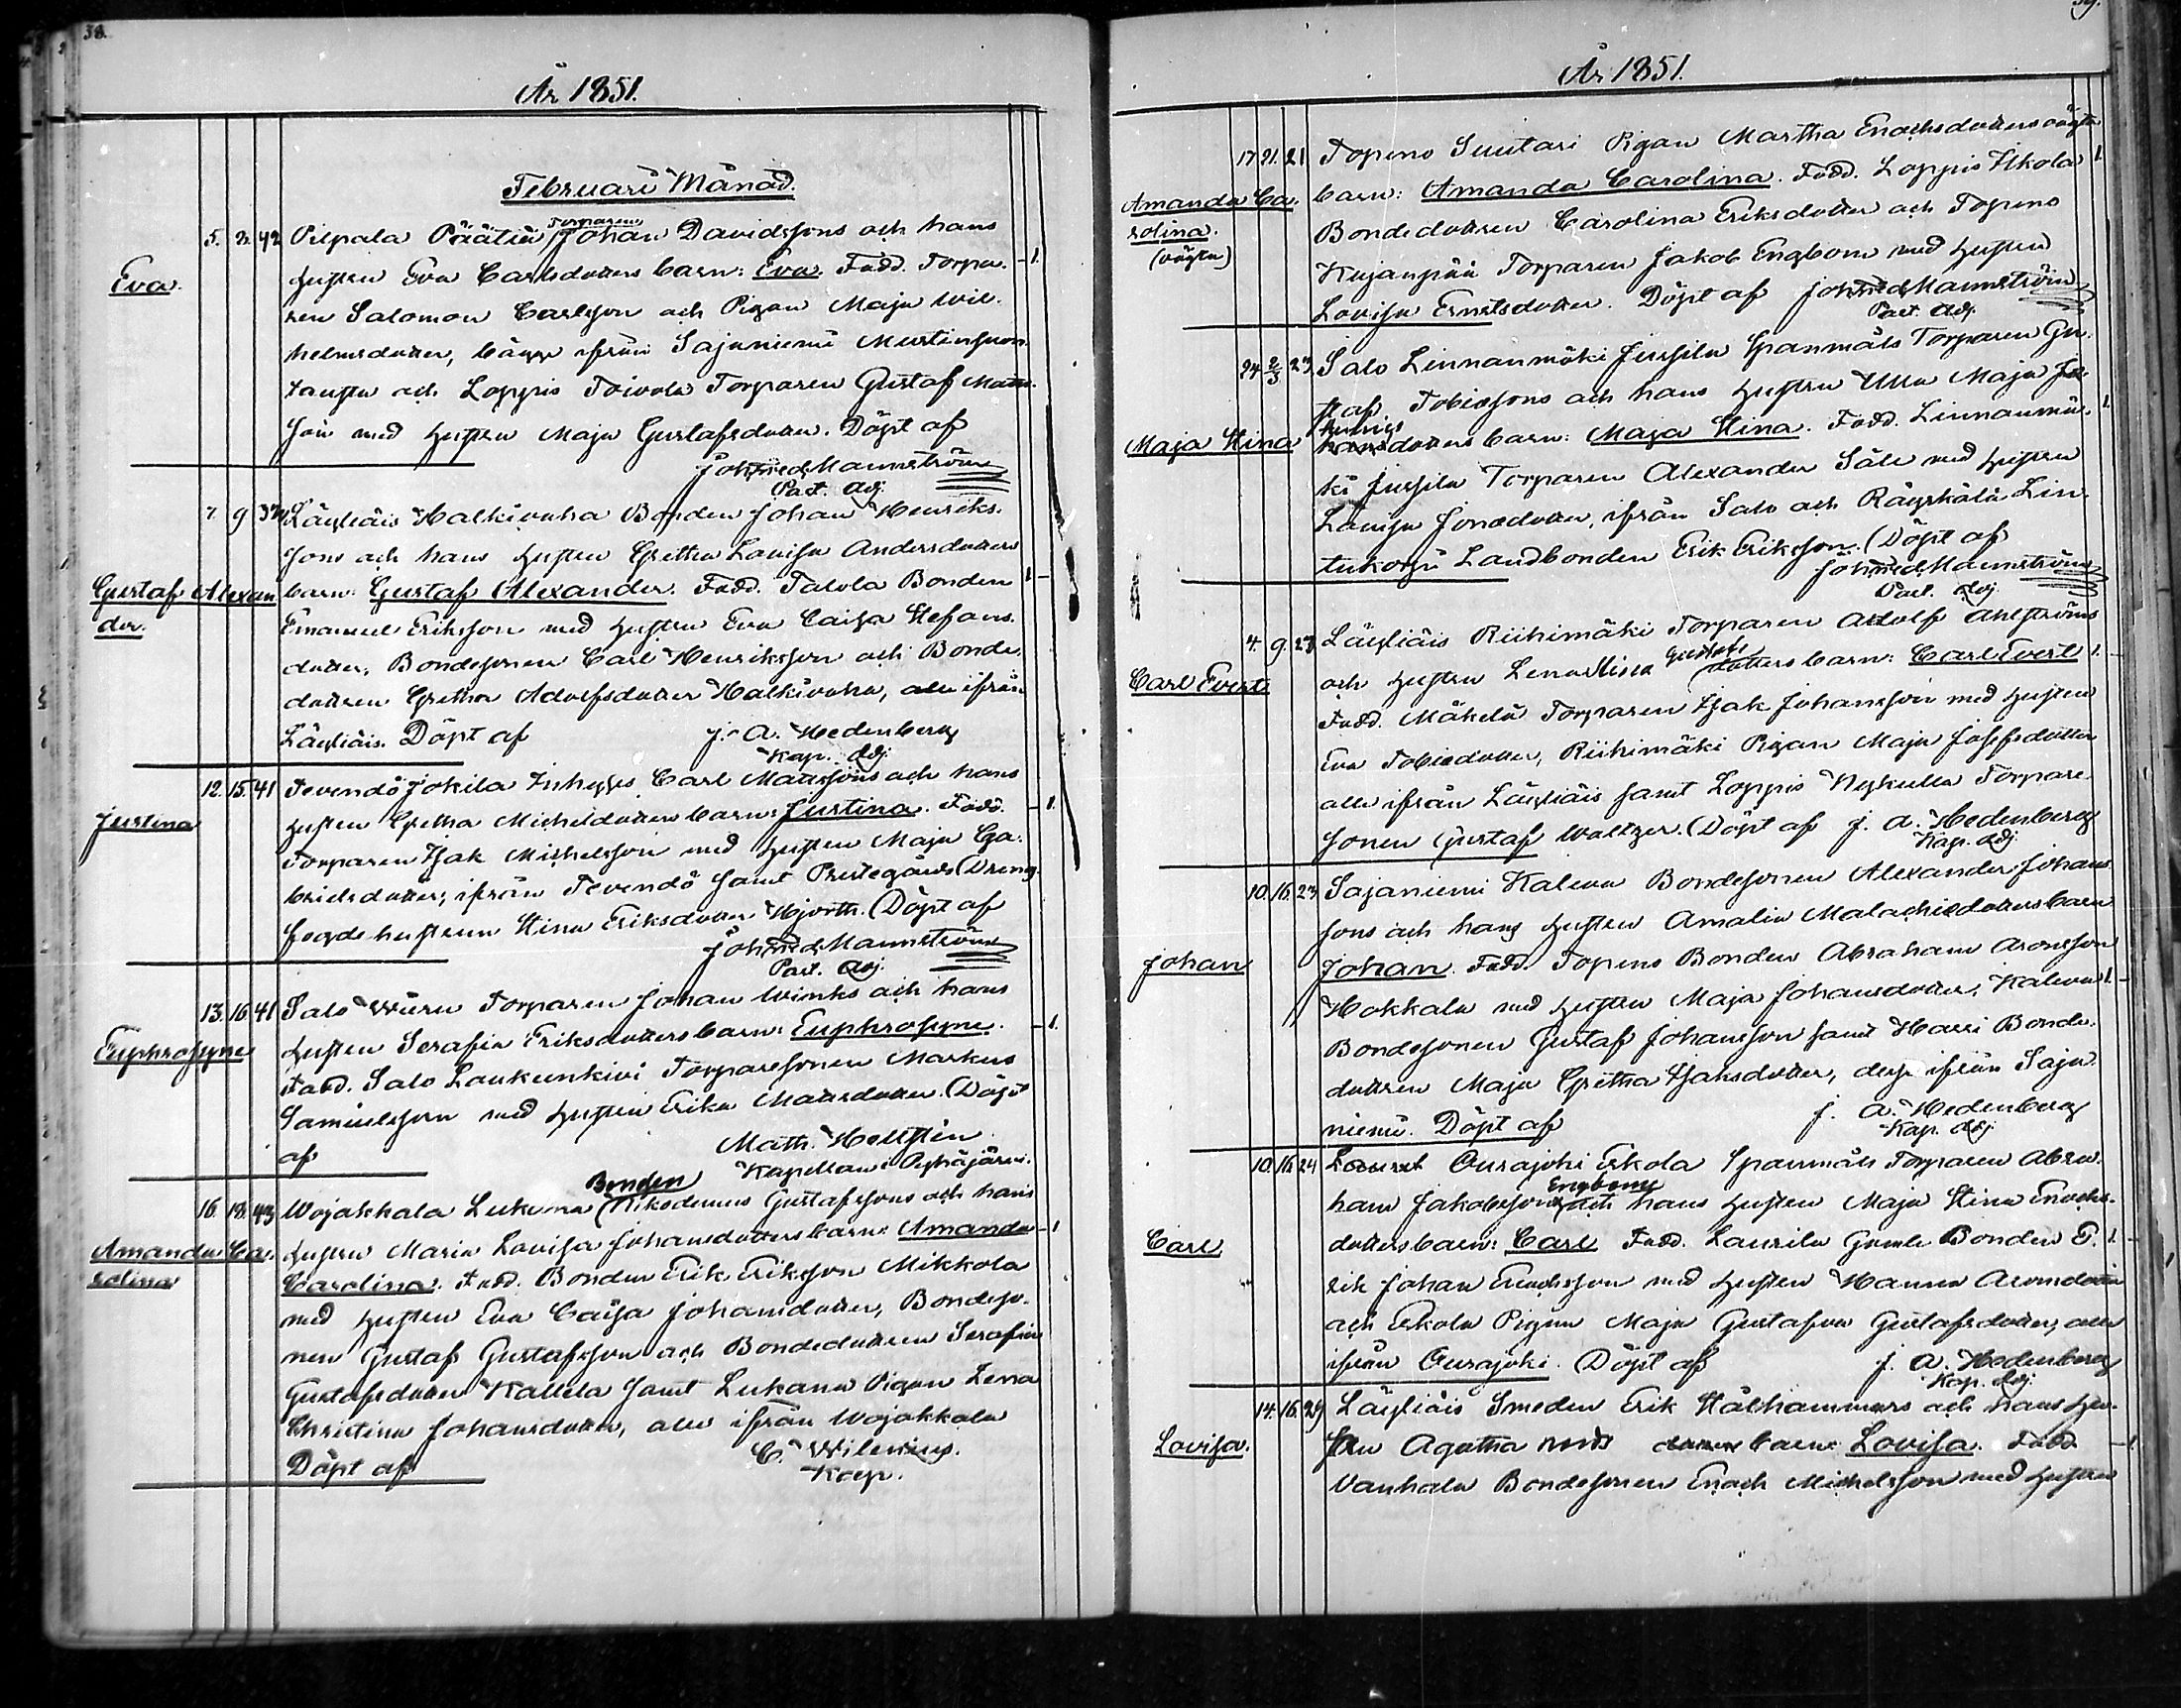 38.
År 1851.
Februari Månad.
Torparen
5. 9. 42 Pilpala Päätiä Johan Davidssons och hans
Eva. hustru Eva Carlsdotters barn: Eva. Fadd. Torpa- 1.
ren Salomon Carlsson och Pigan Maja Wil-
helmsdotter, bägge ifrån Sajaniemi
och Loppis Toivola Torparen Gustaf Matts-
son med hustru Maja Gustafsdotter. Döpt af
Joh: Fried: Mannström
Past. Adj.
7. 9. 37 Läyliäis Halkivaha Bonden Johan Henriks-
sons och hans hustru Gretha Lovisa Andersdotters
Gustaf Alexan barn: Gustaf Alexander. Fadd. Talola Bonden 1
der. Emanuel Eriksson med hustru Eva Caisa Stefans-
dotter, Bondesonen Carl Henriksson och Bonde-
dottren Gretha Adolfsdotter Halkivaha, alla ifrån
Läyliäis. Döpt af J. A. Hedenberg
Kap. Adj.
12. 15. 41 Tevendö Jokila Inhyses Carl Mattssons och hans
Justina hustru Gretha Michelsdotters barn: Justina. Fadd. 1.
Torparen Isak Michelsson med hustru Maja Ga-
brielsdotter, ifrån Tevendö samt Prestegårds Dreng
fogde hustrun Stina Eriksdotter Hjorth. Döpt af
Joh: Fried: Mannström
Past. Adj.
13. 16. 41 Salo Torparen Johan Winks och hans
Euphrosyne hustru Serafia Eriksdotters barn: Euphrosyne. 1.
Fadd. Salo Laukunkivi Torparesonen Markus
Samuelsson med hustru Erika Mattsdotter. Döpt
af Math. Hellstén
Kapellan i Pyhäjärvi.
Bonden
16. 18. 43 Wojakkala Lukana Nikodemus Gustafssons och hans
Amanda Ca- hustru Maria Lovisa Johansdotters barn: Amanda 1
rolina Carolina. Fadd. Bonden Erik Eriksson Mikkola
med hustru Eva Caisa Johansdotter, Bondeso-
nen Gustaf Gustafsson och Bondedottren Serafia
Gustafsdotter Kallela samt Lukana Pigan Lena
Christina Johansdotter, alla ifrån Wojakkala
Döpt af C. Wilenius.
Kap.
39.
År 1851.
17. 21. 21 Topeno Suutari Pigan Martha Enochsdotters oägta
Amanda Ca- barn: Amanda Carolina. Fadd. Loppis Ilkola 1.
rolina. Bondedottren Carolina Eriksdotter och Topeno
(oägta) Kujanpää Torparen Jakob Engbom med hustru
Lovisa Ernstsdotter. Döpt af Joh: Fried: Mannström
Past. Adj.
24 2/3 23 Salo Linnanmäki Jussila Spanmåls Torparen Gu-
staf Tobiassons och hans hustru Ulla Maja
Maja Stina dotters barn: Maja Stina. Fadd. Linnanmä- 1.
ki Jussila Torparen Alexander Säle med hustru
Lovisa Jonasdotter, ifrån Salo och Räyskälä Lin-
tukorpi Landbonden Erik Eriksson. Döpt af
Joh: Fried: Mannström
Past. Adj.
4. 9. 27 Läyliäis Riihimäki Torparen Adolf Ahlströms
Gustafs
Carl Evert och hustru Lena Stina dotters barn: Carl Evert 1.
Fadd. Mäkelä Torparen Isak Johansson med hustru
Eva Tobiasdotter, Riihimäki Pigan Maja Josefsdotter
alla ifrån Läyliäis samt Loppis Nykulla Torpare-
sonen Gustaf Waltzer. Döpt af J. A. Hedenberg
Kap. Adj.
10. 16. 23 Sajaniemi Kaleva Bondesonen Alexander Johans-
sons och hans hustru Amalia Malachiedotters barn
Johan Johan. Fadd. Topeno Bonden Abraham Aronsson
Hokkala med hustru Maja Johansdotter, Kaleva 1.
Bondesonen Gustaf Johansson samt Harri Bonde-
dottren Maja Gretha Isaksdotter, desse ifrån Saja-
niemi. Döpt af J. A. Hedenberg
Kap. Adj.
10. 16. 24 Ourajoki Eskola Spanmåls Torparen Abra-
Engboms
ham Jakobssons och hans hustru Maja Stina Enochs-
Carl dotters barn: Carl Fadd. Laurila Gamla Bonden E- 1.
rik Johan Enochsson med hustru Hanna Aronsdotter
och Eskola Pigan Maja Gustafva Gustafsdotter, alla
ifrån Ourajoki. Döpt af J. A. Hedenberg
Kap. Adj.
14. 16. 29 Läyliäis Smeden Erik Stålhammars och hans hu-
Lovisa. stru Agatha barn: Lovisa. Fadd. 1.
Vanhala Bondesonen Enoch Michelsson med hustru